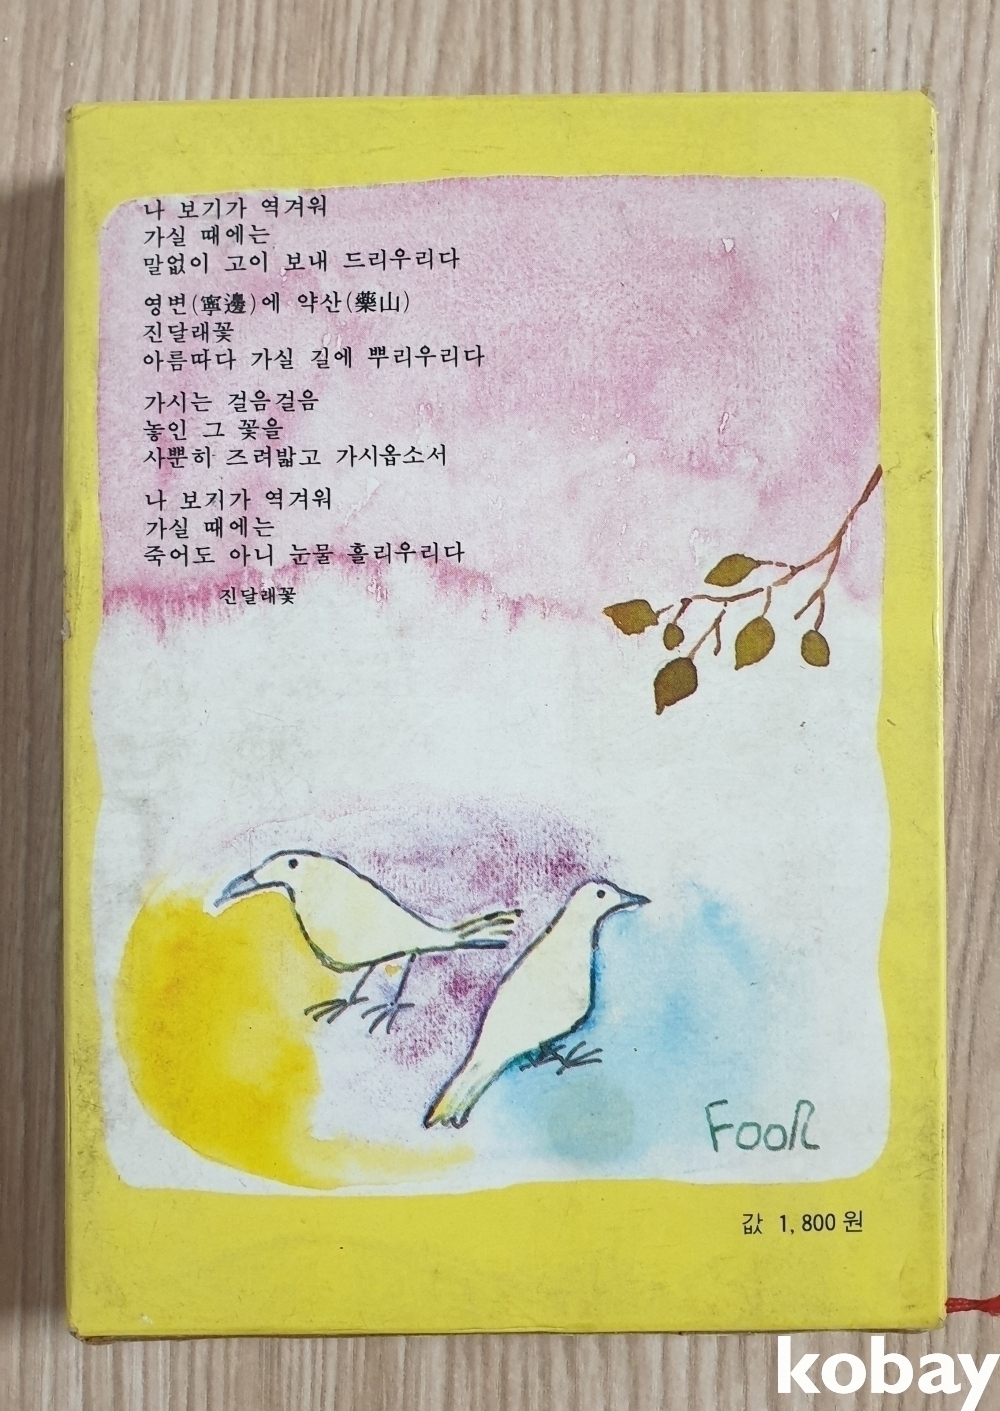 나 보기가 역겨워
가실 때에는
말없이 고이 보내 드리우리다
영변(寧邊)에 약산(藥山)
진달래꽃
아름따다 가실 길에 뿌리우리다
가시는 걸음걸음
놓인 그 꽃을
사뿐히 즈려밟고 가시옵소서
나 보기가 역겨워
가실 때에는
죽어도 아니 눈물 흘리우리다
진달래꽃
FOOR
값 1,800원
kobay